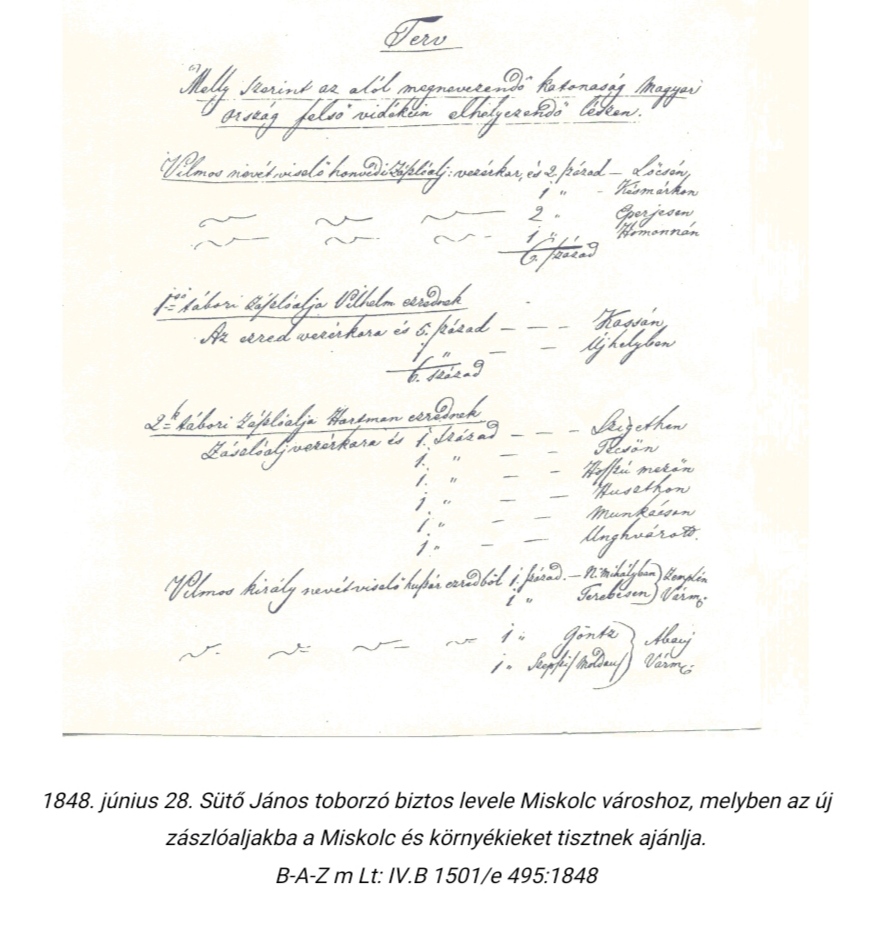 Terv
Melly szerint az alól megnevezendő katonaság Magyar
ország felső vidékein elhelyezendő lészen.
Vilmos nevét viselő honvédi zászlóalj: vezérkar, és 2. század – Lőcsén,
1 „ - Késmárkon
2 „ Eperjesen
1 „ Homonnán
6. század
1ső tábori zászlóalja Vilhelm ezrednek
Az ezred vezérkara és 5. század – – – Kassán
1 „ – – Ujhelyben
6. század
2k tábori zászlóalja Hartman ezrednek
Zászlóalj vezérkara és 1. század – – – Szigethen
1. „ – – Técsőn
1. „ – – Hosszú mezőn
1. „ – – Huszthon
1. „ – – Munkácson
1. „ – – Unghvárott.
Vilmos király nevét viselő huszár ezredből 1. század. – N. Mihályban) Zemplén
1 „ Terebesen) Várm.
1 „ Göntz } Abauj
1 „ Szepsi/Moldau/ } Várm.
1848. június 28. Sütő János toborzó biztos levele Miskolc városhoz, melyben az új
zászlóaljakba a Miskolc és környékieket tisztnek ajánlja.
B-A-Z m Lt: IV.B 1501/e 495:1848